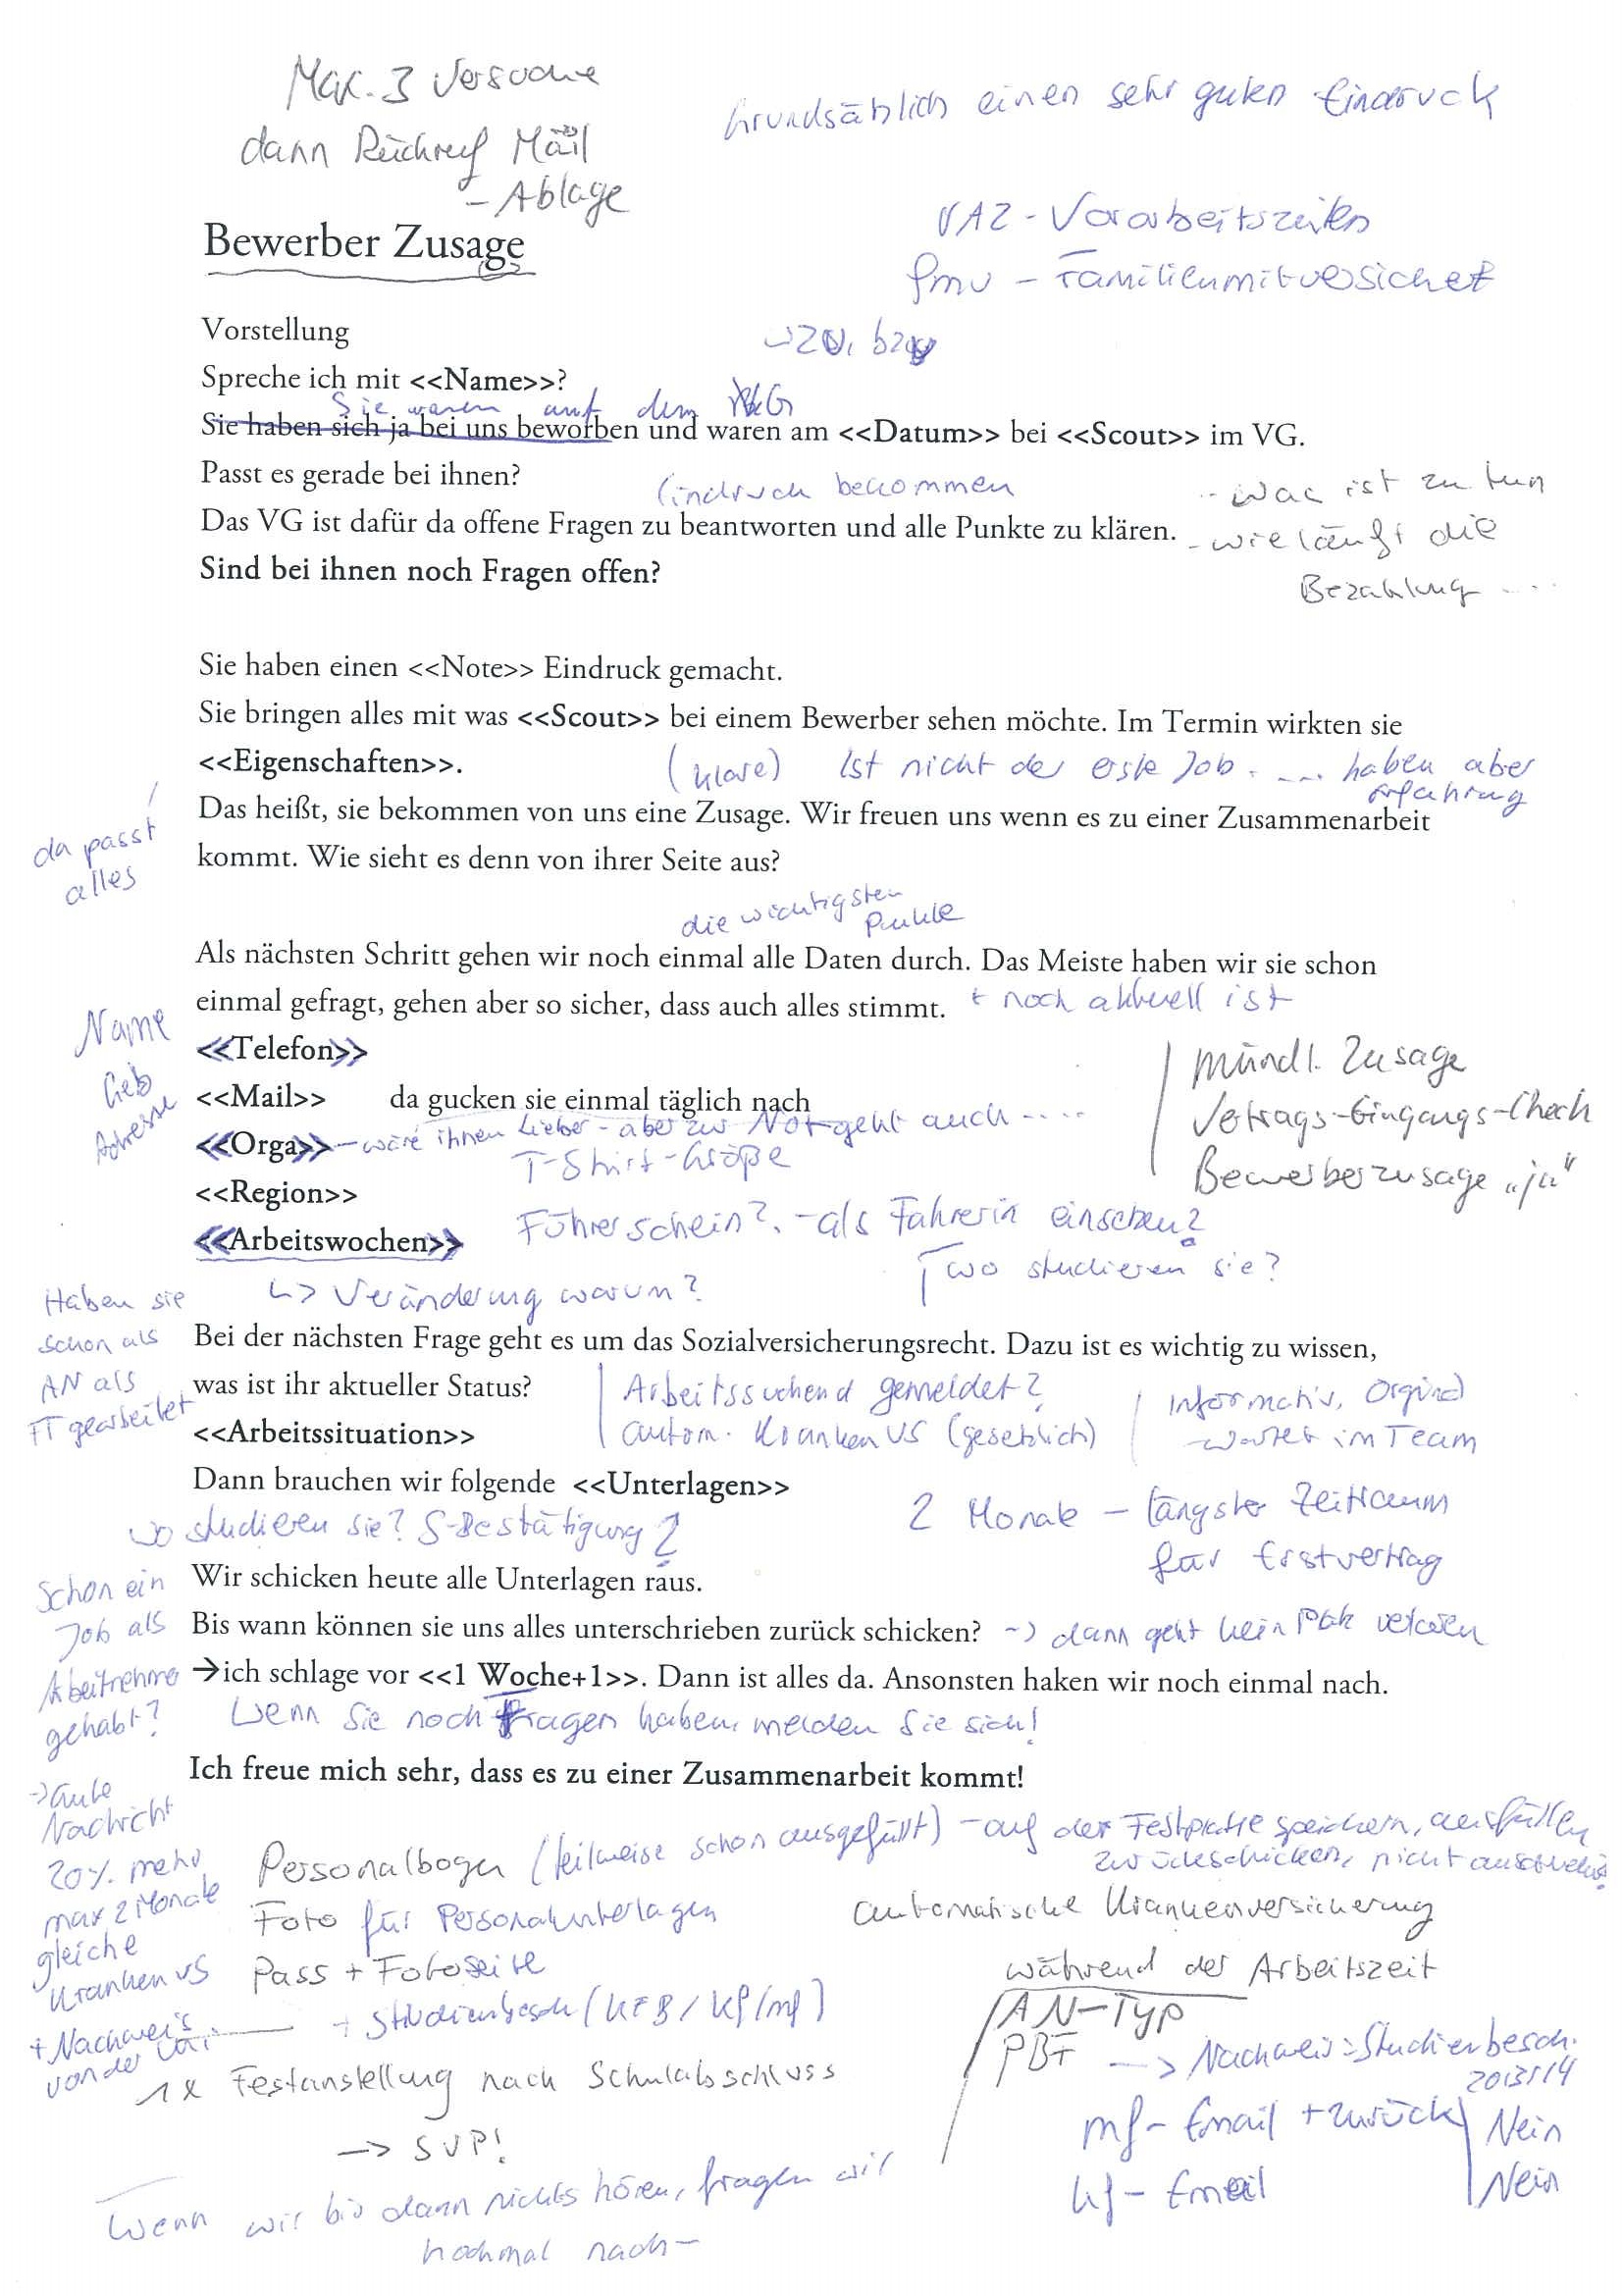 Max. 3 Versuche
dann Rückruf Mail
- Ablage
Grundsätzlich einen sehr guten Eindruck
VAZ - Vorarbeitszeiten
fmv - Familienmitversichert
Bewerber Zusage
Vorstellung
bzw
Spreche ich mit <<Name>>?
Sie waren auf dem VG
Sie haben sich ja bei uns beworben und waren am <<Datum>> bei <<Scout>> im VG.
Passt es gerade bei ihnen?
Eindruck bekommen
- was ist zu tun
Das VG ist dafür da offene Fragen zu beantworten und alle Punkte zu klären.
- wie läuft die
Bezahlung ....
Sind bei ihnen noch Fragen offen?
Sie haben einen <<Note>> Eindruck gemacht.
Sie bringen alles mit was <<Scout>> bei einem Bewerber sehen möchte. Im Termin wirkten sie
<<Eigenschaften>>.
(klare) Ist nicht der erste Job. ... haben aber
Erfahrung
da passt
alles
Das heißt, sie bekommen von uns eine Zusage. Wir freuen uns wenn es zu einer Zusammenarbeit
kommt. Wie sieht es denn von ihrer Seite aus?
die wichtigsten
Punkte
Als nächsten Schritt gehen wir noch einmal alle Daten durch. Das Meiste haben wir sie schon
einmal gefragt, gehen aber so sicher, dass auch alles stimmt. + noch aktuell ist
Name
Geb
Adresse
<<Telefon>>
<<Mail>> da gucken sie einmal täglich nach
<<Orga>> - wäre ihnen lieber - aber zur Not geht auch ....
T-Shirt-Größe
<<Region>>
mündl. Zusage
Vertrags-Eingangs-Check
Bewerberzusage "ja"
Führerschein? - als Fahrerin einsetzen?
<<Arbeitswochen>>
wo studieren sie?
↳ Veränderung warum?
Haben sie
schon als
AN als
FT gearbeitet
Bei der nächsten Frage geht es um das Sozialversicherungsrecht. Dazu ist es wichtig zu wissen,
was ist ihr aktueller Status?
Arbeitssuchend gemeldet?
autom. KrankenVS (gesetzlich)
Informativ,
- wartet im Team
<<Arbeitssituation>>
Dann brauchen wir folgende <<Unterlagen>>
wo studieren sie? S-Bestätigung?
2 Monate - längster Zeitraum
für Erstvertrag
Wir schicken heute alle Unterlagen raus.
Schon ein
Job als
Arbeitnehmer
gehabt?
Bis wann können sie uns alles unterschrieben zurück schicken? -> dann geht kein Platz verloren
→ich schlage vor <<1 Woche+1>>. Dann ist alles da. Ansonsten haken wir noch einmal nach.
Wenn Sie noch Fragen haben, melden Sie sich!
Ich freue mich sehr, dass es zu einer Zusammenarbeit kommt!
-> Gute
Nachricht
20% mehr
max 2 Monate
gleiche
Kranken VS
+ Nachweis
von der
Personalbogen (teilweise schon ausgefüllt) - auf der Festplatte speichern, ausfüllen
zurückschicken, nicht ausdrucken
Foto für Personalunterlagen
automatische Krankenversicherung
während der Arbeitszeit
Pass + Fotoseite
+ Studienbesch (KFB/kf/mf)
AN-Typ
PBF -> Nachweis: Studienbesch.
2013/14
1x Festanstellung nach Schulabschluss
-> SVP!
mf - Email + zurück Nein
kf - Email Nein
Wenn wir bis dann nichts hören, fragen wir
nochmal nach -